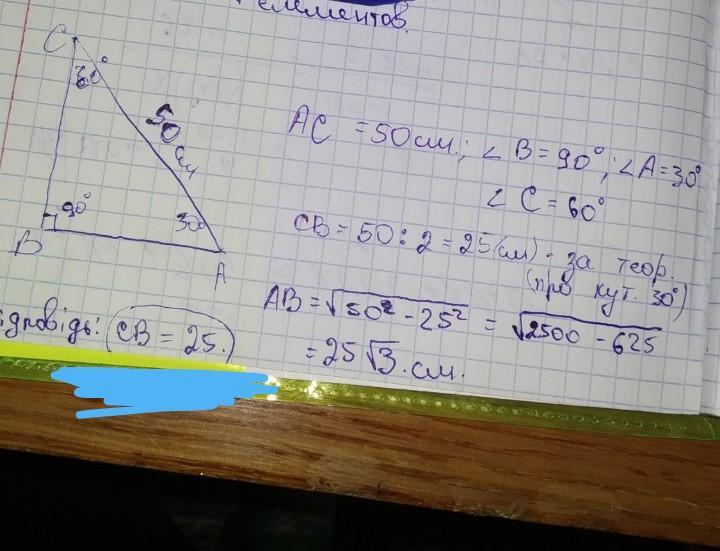 элементов.
C
60°
50 см
90°
30°
B
A
AC = 50 см.; ∠B = 90°; ∠A = 30°
∠C = 60°
CB = 50 : 2 = 25(см) - за теор.
(про кут. 30°)
AB = √50² - 25² = √2500 - 625
= 25√3. см.
ідповідь: CB = 25.